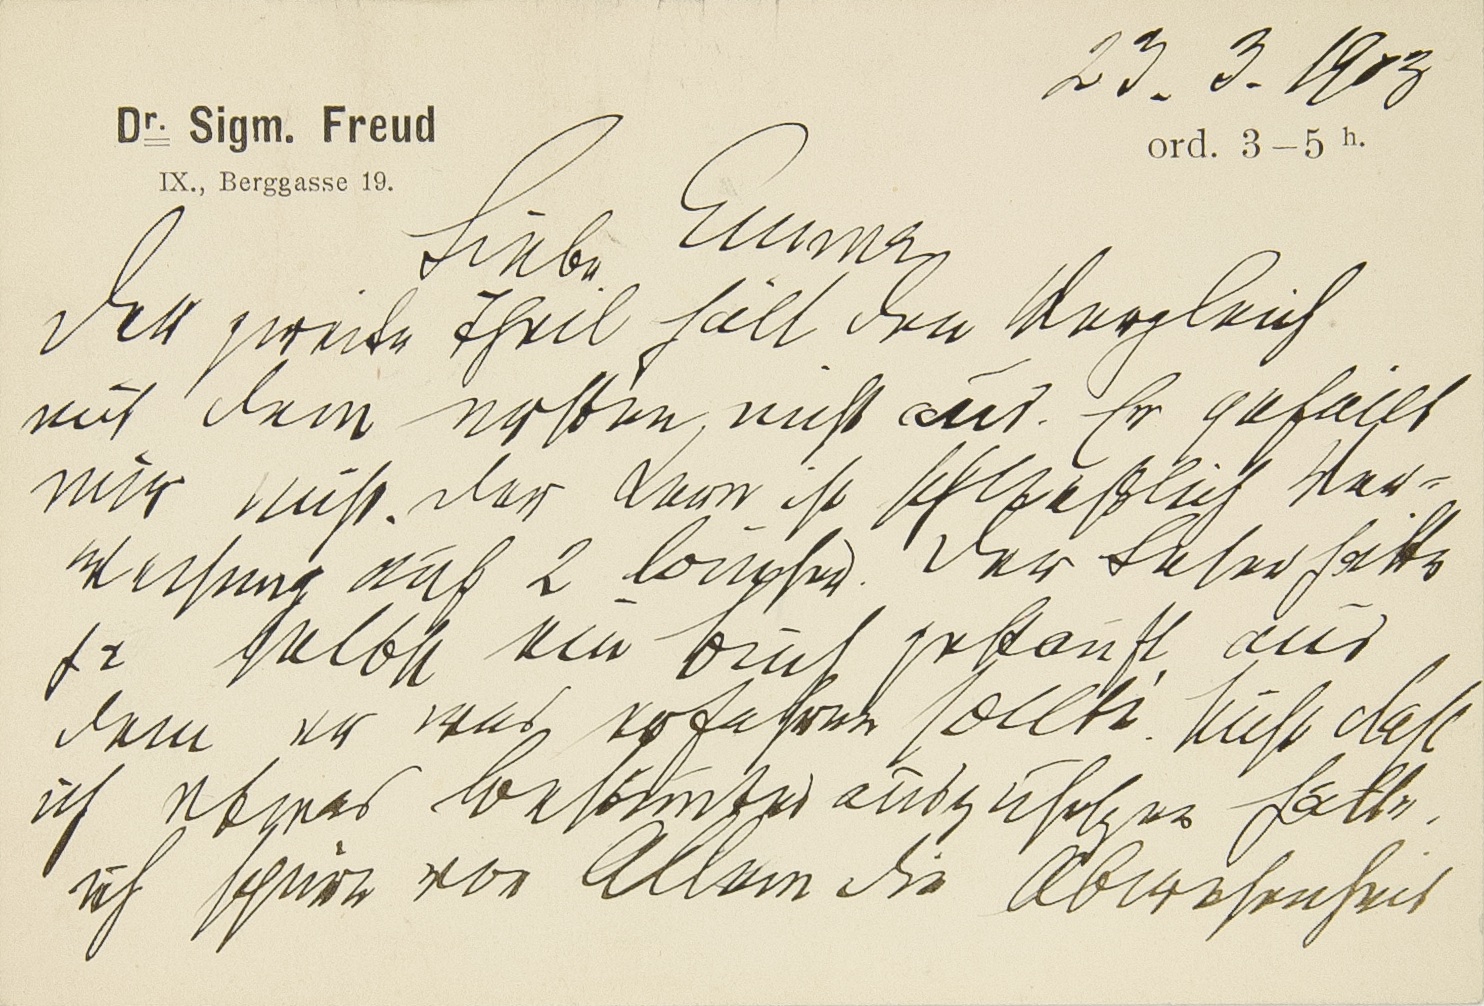 23. 3. 1903
Dr. Sigm. Freud
IX., Berggasse 19.
ord. 3–5 h.
Liebe Emma
Der zweite Theil hält den Vergleich
mit dem ersten nicht aus. Er gefällt
mir nicht. Der Kern ist schließlich Ver-
weisung auf 2 Bücher. Der Leser hätte
ja selbst ein Buch gekauft aus
dem er was erfahren sollte. Nicht daß
ich etwas bestimmtes auszusetzen hätte,
ich spüre vor Allem die Abwesenheit